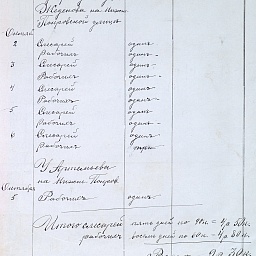 на Нижне
Покровской улице
2 Слесарей один
Рабочих один
3 Слесарей один
Рабочих один
4 Слесарей один
Рабочих один
5 Слесарей один
Рабочих один
6 Слесарей один
Рабочих три
У Артемьева
на Нижне Покров.
5 Рабочих один
Итого слесарей пять дней по 90к. = 4р 50к.
рабочих восемь дней по 60к. = 4р 80к.